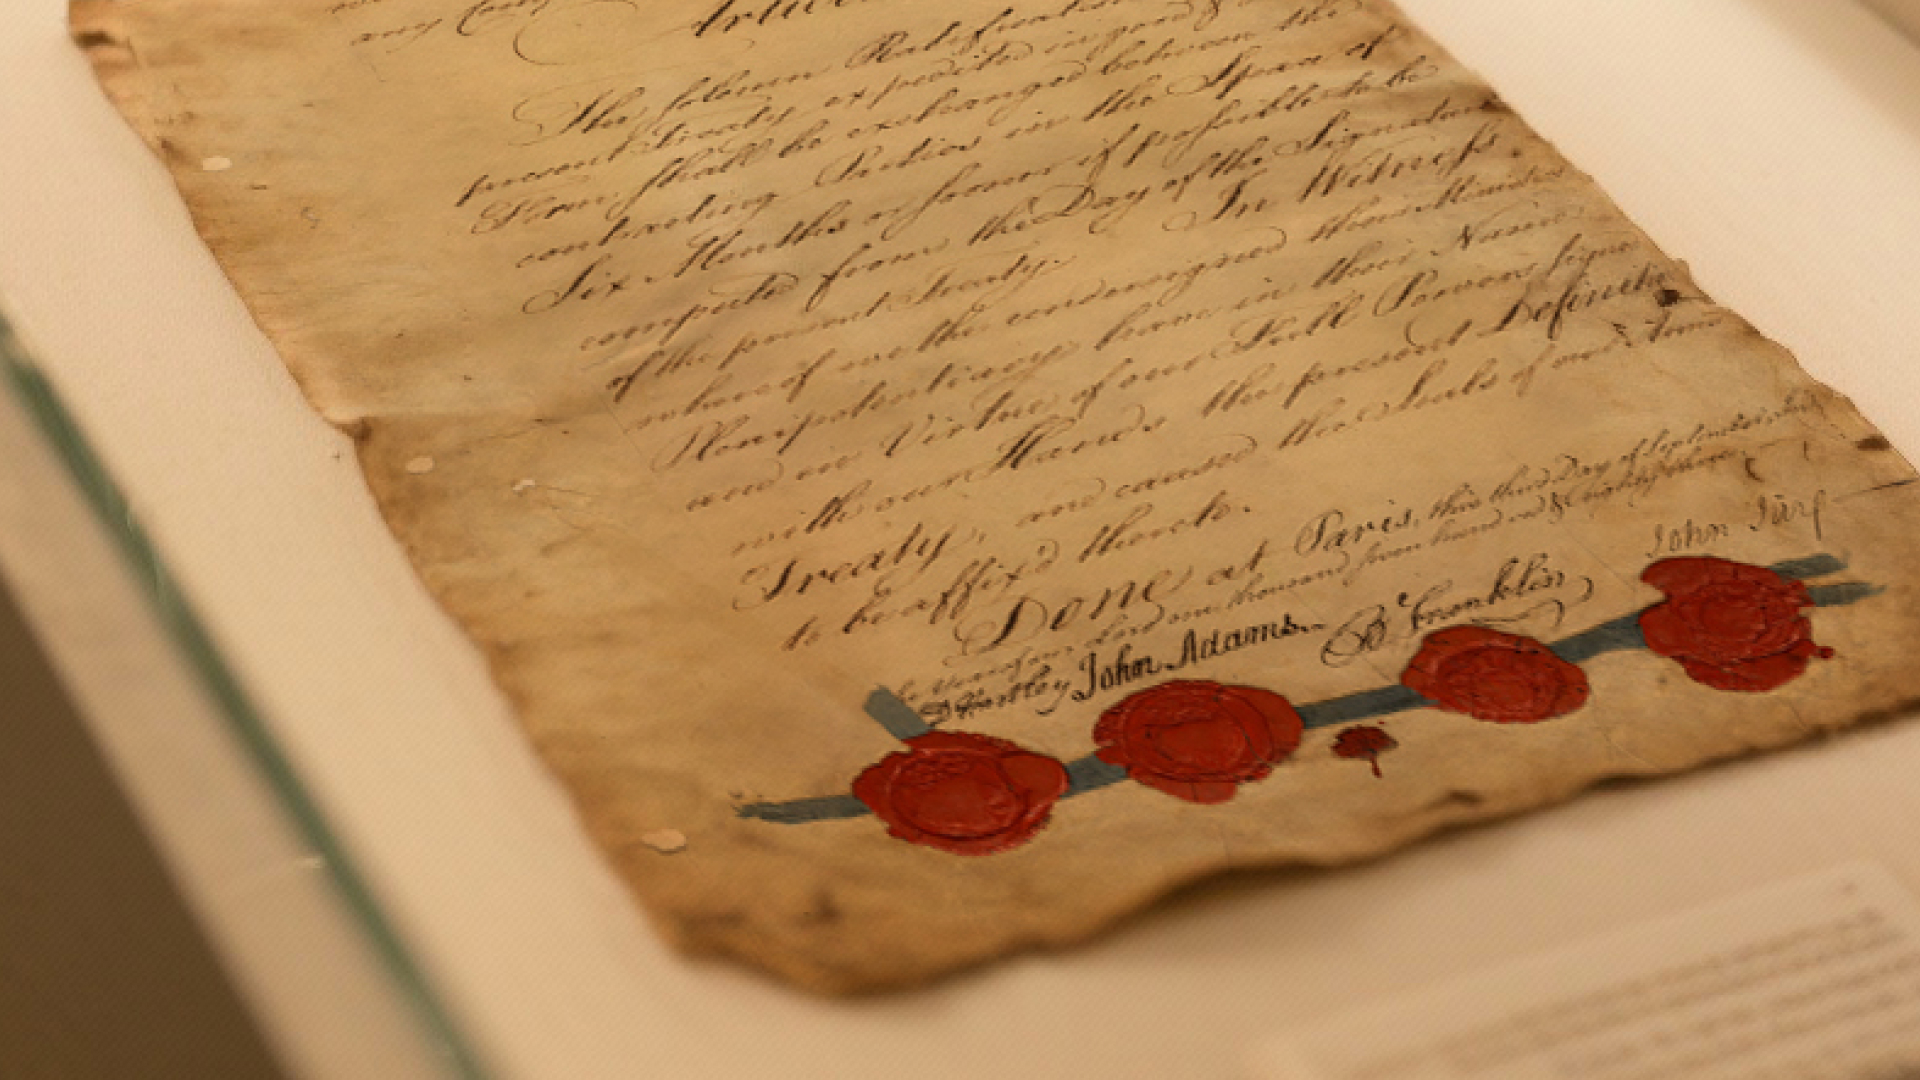 any
Article
The solemn Ratifications
present Treaty expedited in good &
Form shall be exchanged between the
contracting Parties in the Space of
Six Months or sooner if possible to be
computed from the Day of the Signature
of the present Treaty. In Witness
whereof we the undersigned their Minis
Plenipotentiary have in their Name
and in Virtue of our Full Powers signe
with our Hands the present Definitiv
Treaty, and caused the Seals of our Arms
to be affix'd thereto.
Done at Paris, this third Day of September
the Year of our Lord one thousand seven hundred & eighty three
D Hartley John Adams. B Franklin John